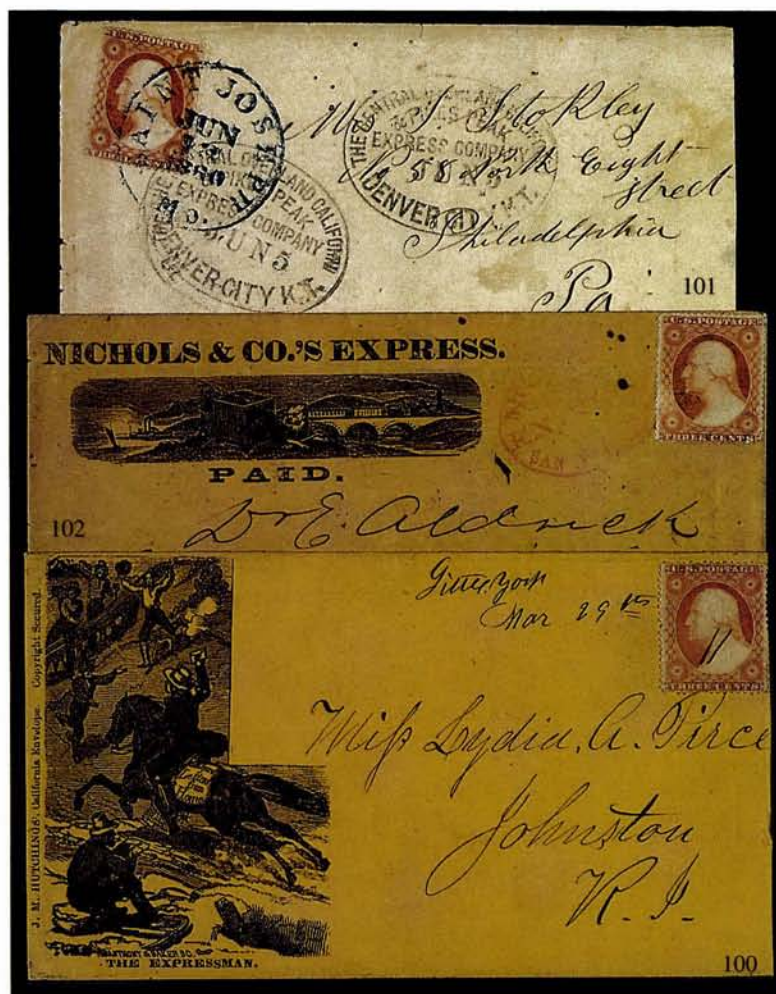 U.S. POSTAGE
SAINT JOSEPH
JUN
1860
Mo.
THE CENTRAL OVERLAND CALIFORNIA
& PIKES PEAK
EXPRESS COMPANY
JUN 5
DENVER CITY K.T.
THE CENTRAL OVERLAND CALIFORNIA
& PIKES PEAK
EXPRESS COMPANY
JUN 5
DENVER CITY K.T.
Stokley
58 North Eight
Street
Philadelphia
Pa
101
NICHOLS & CO.'S EXPRESS.
PAID.
U.S. POSTAGE
THREE CENTS
Dr E. Aldrick
102
J. M. HUTCHINGS' California Envelope. Copyright Secured.
THE EXPRESSMAN.
York
Mar 29th
U.S. POSTAGE
THREE CENTS
Miſs Lydia. A. Pirce
Johnston
R. I.
100